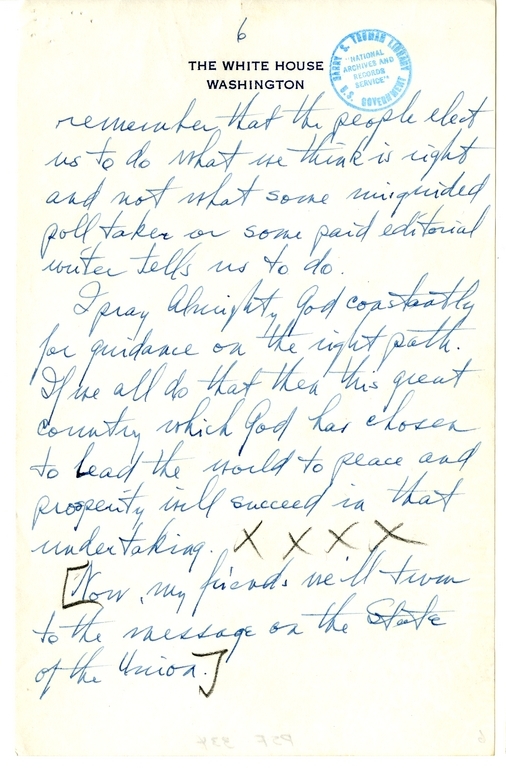 6
THE WHITE HOUSE
WASHINGTON
HARRY S. TRUMAN LIBRARY
"NATIONAL
ARCHIVES AND
RECORDS
SERVICE"
U.S. GOVERNMENT
remember that the people elect
us to do what we think is right
and not what some misguided
poll taker or some paid editorial
writer tells us to do.
I pray Almighty God constantly
for guidance on the right path.
If we all do that then this great
country which God has chosen
to lead the world to peace and
prosperity will succeed in that
undertaking. X X X X
[Now, my friends we'll turn
to the message on the State
of the Union.]
PSF 334
6